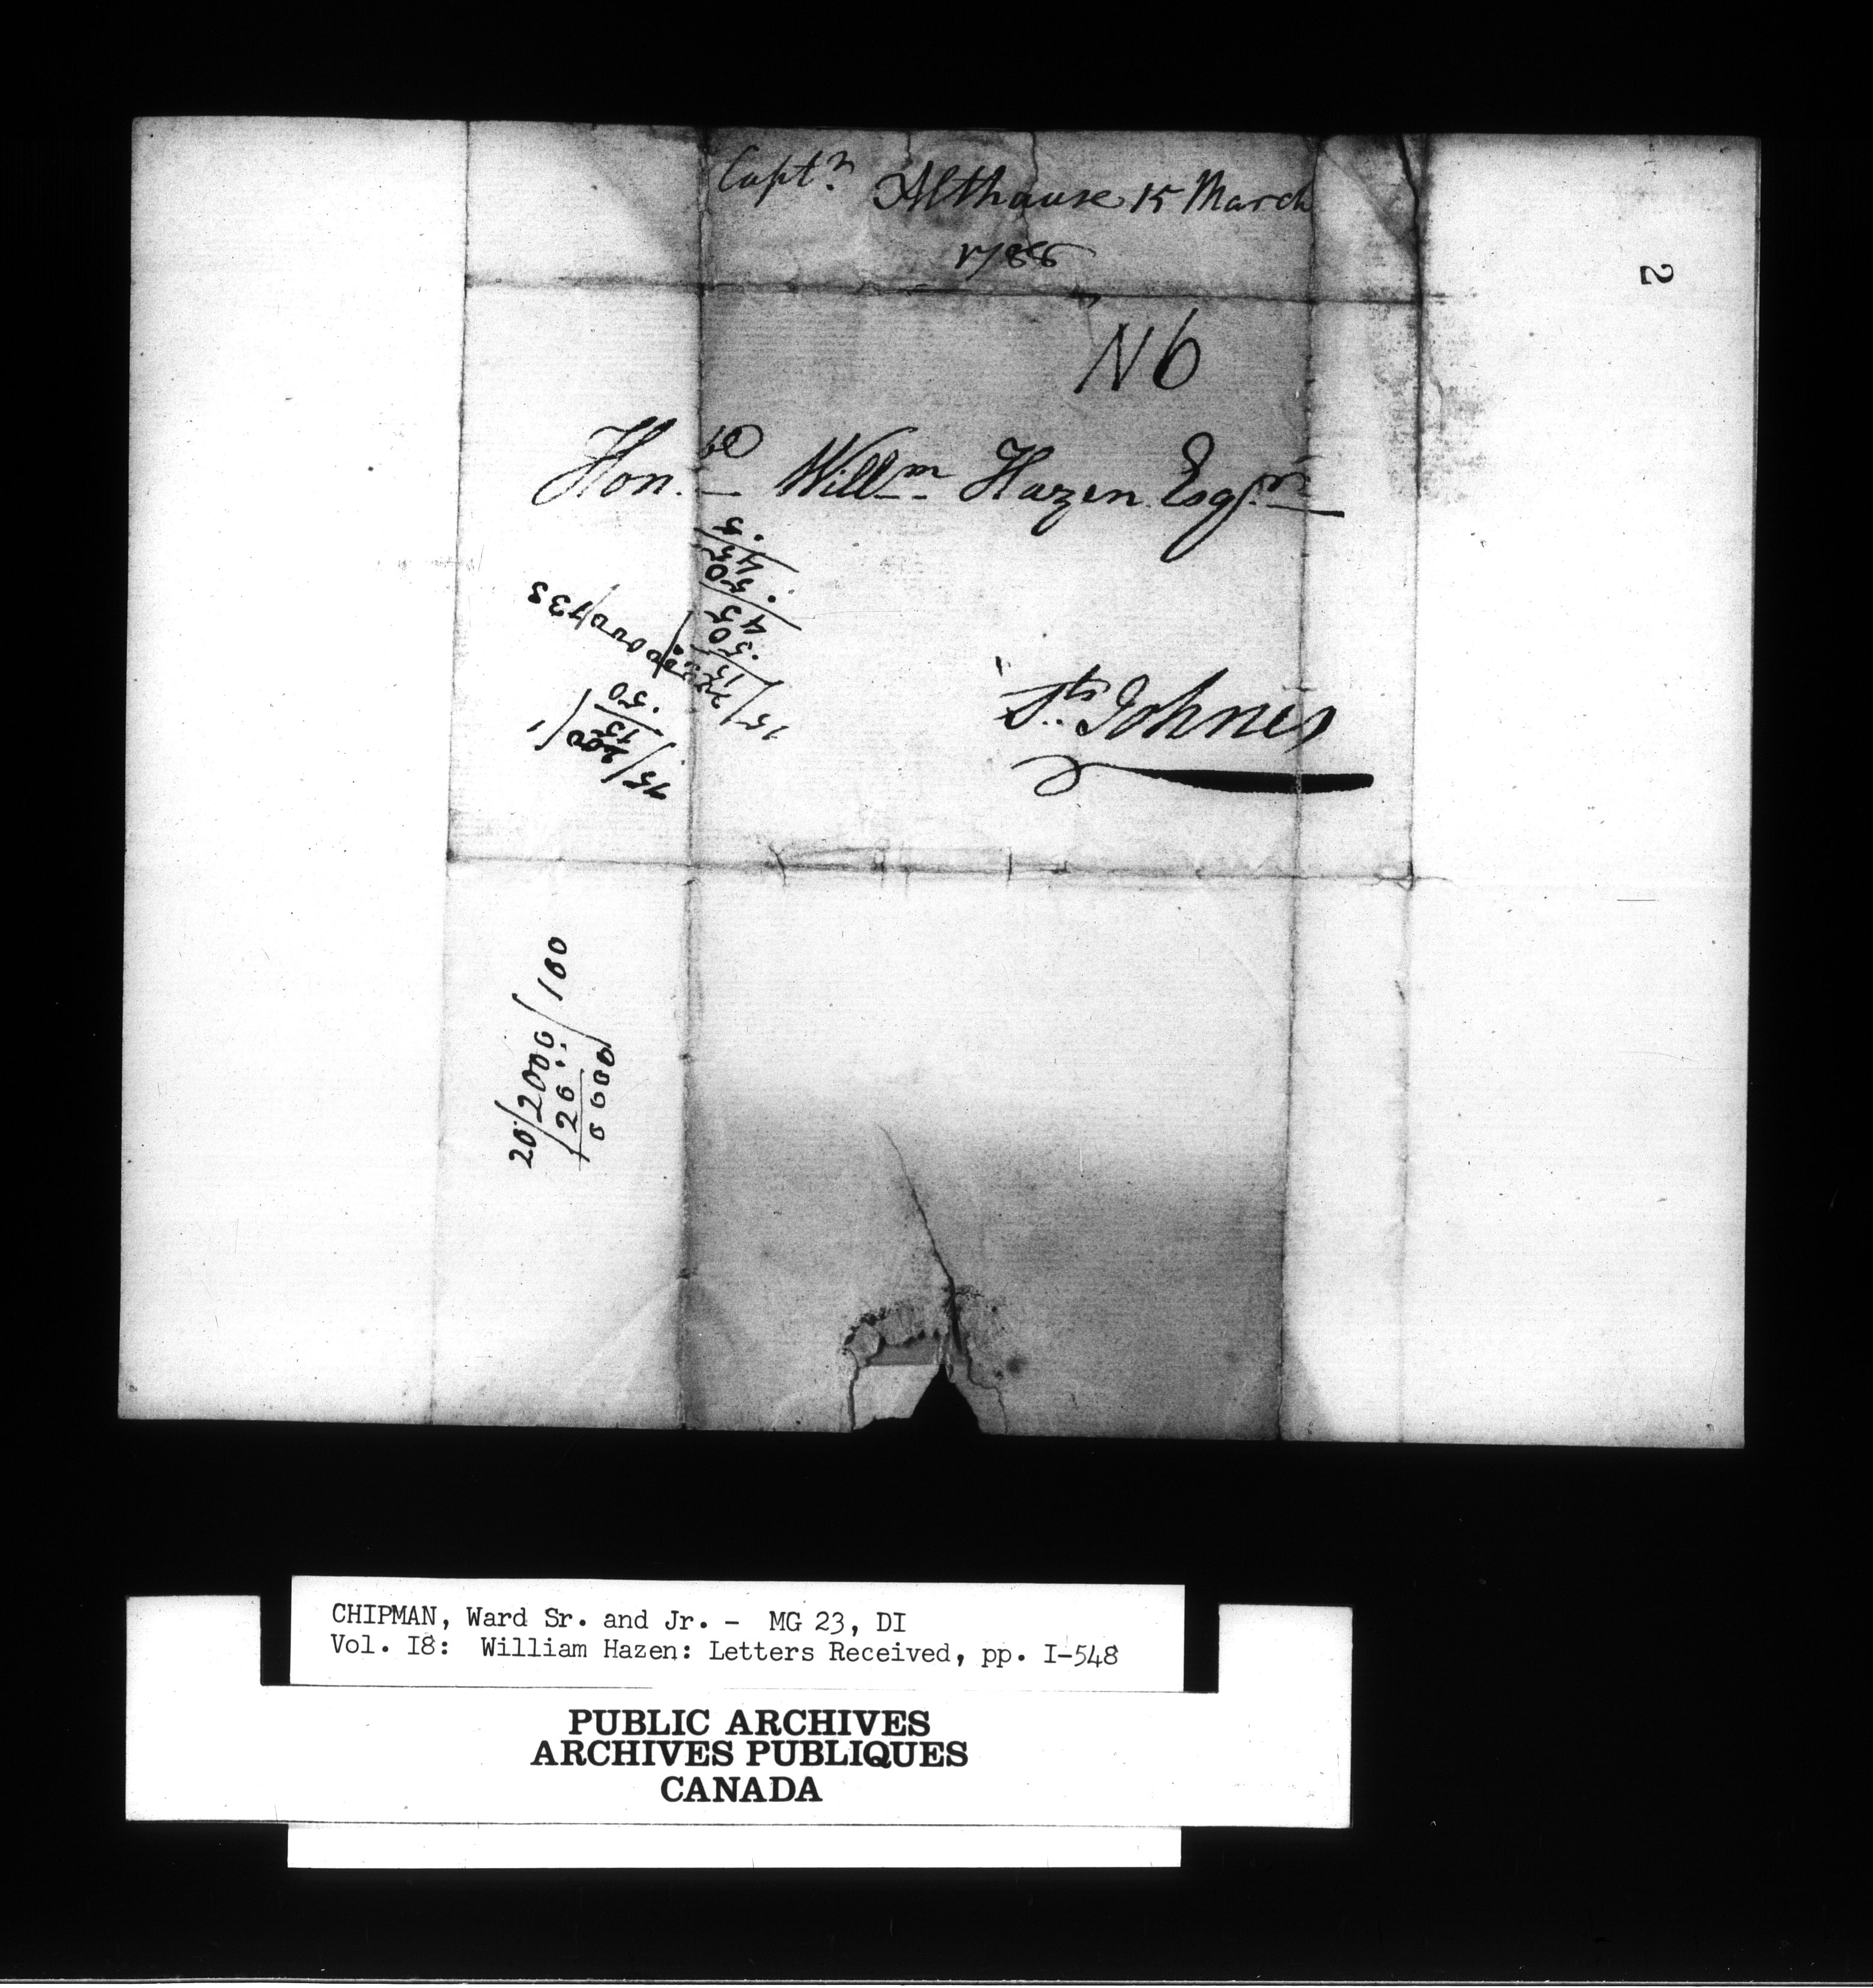 Captn Althause 15 March
1786
2
N 6
Honble Willm Hazen Esqr
St Johnes
20/2000/100
20
0000
15/200/1
15
50
CHIPMAN, Ward Sr. and Jr. - MG 23, DI
Vol. I8: William Hazen: Letters Received, pp. I-548
PUBLIC ARCHIVES
ARCHIVES PUBLIQUES
CANADA